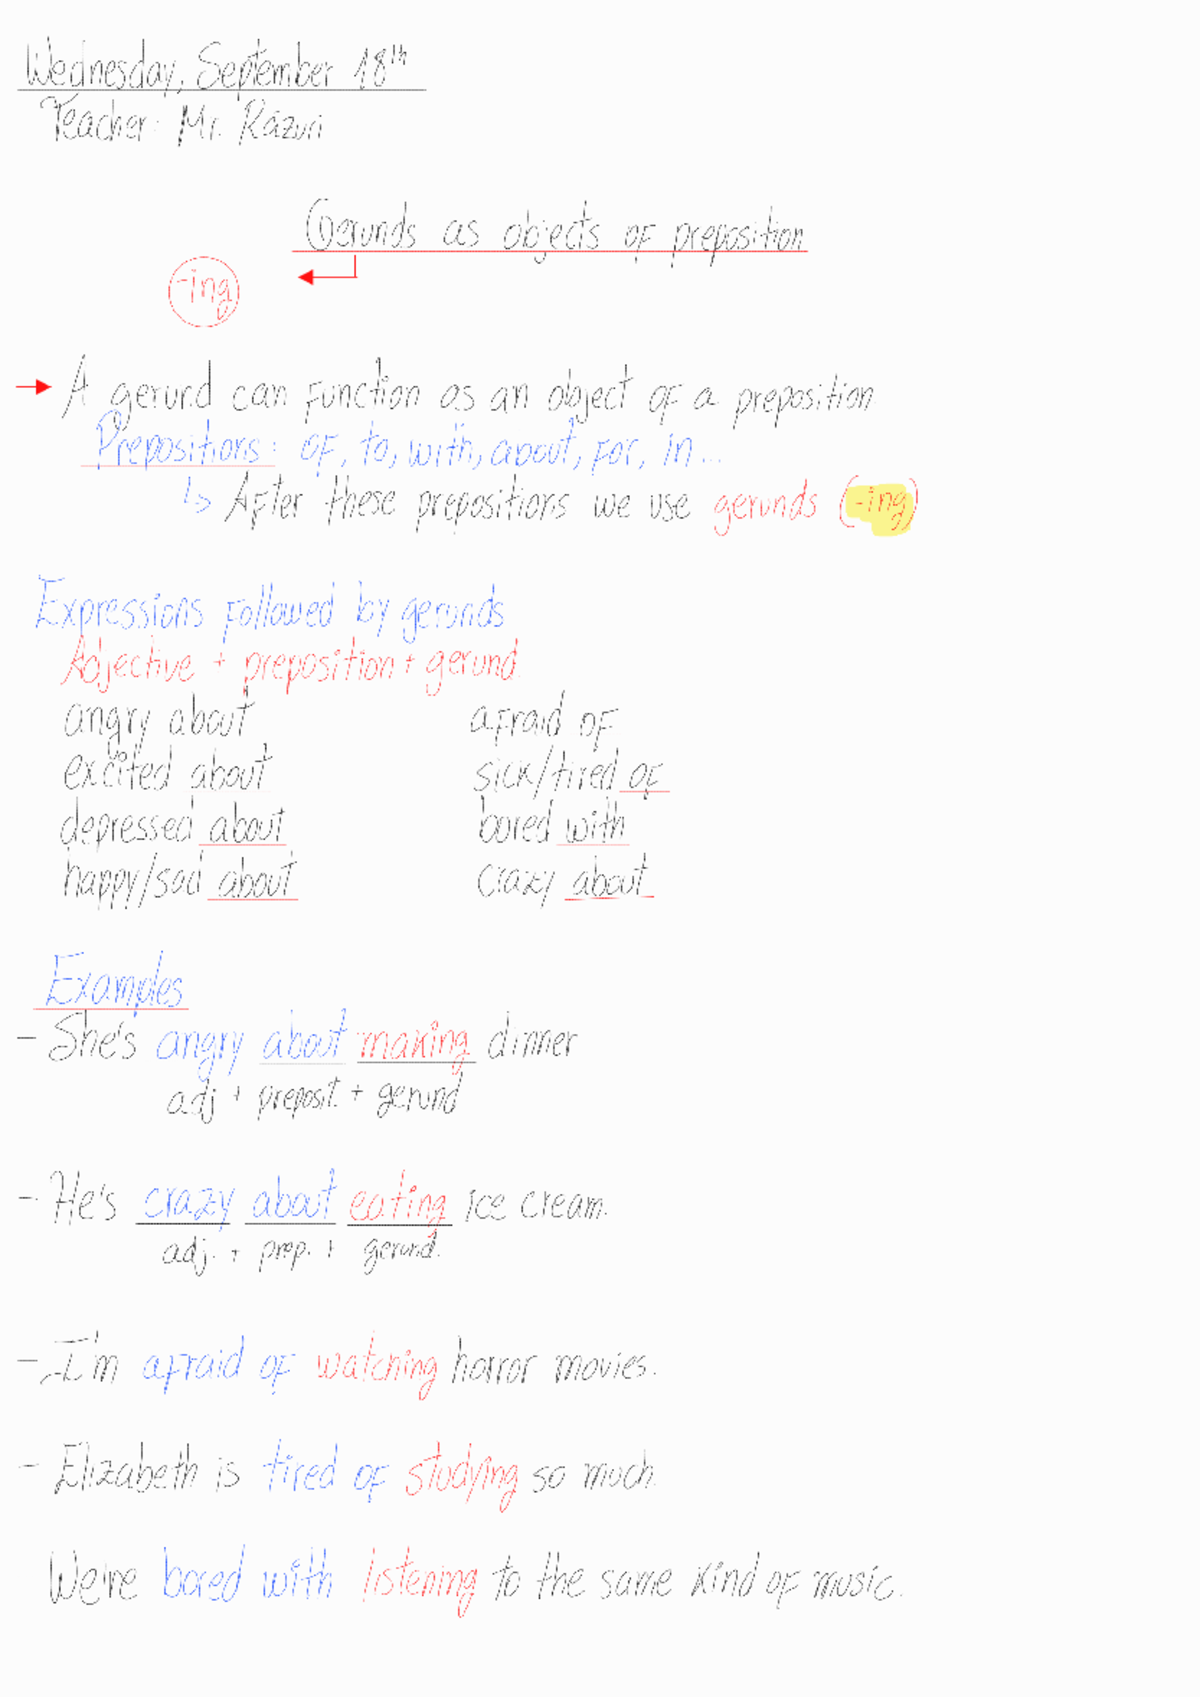 Wednesday, September 18th
Teacher: Mr. Rázuri
Gerunds as objects of preposition
-ing
A gerund can function as an object of a preposition
Prepositions: of, to, with, about, for, in...
After these prepositions we use gerunds (-ing)
Expressions followed by gerunds
Adjective + preposition + gerund.
angry about
excited about
depressed about
happy/sad about
afraid of
sick/tired of
bored with
crazy about
Examples
- She's angry about making dinner
adj + preposit. + gerund
- He's crazy about eating ice cream.
adj. + prep. + gerund.
- I'm afraid of watching horror movies.
- Elizabeth is tired of studying so much.
We're bored with listening to the same kind of music.